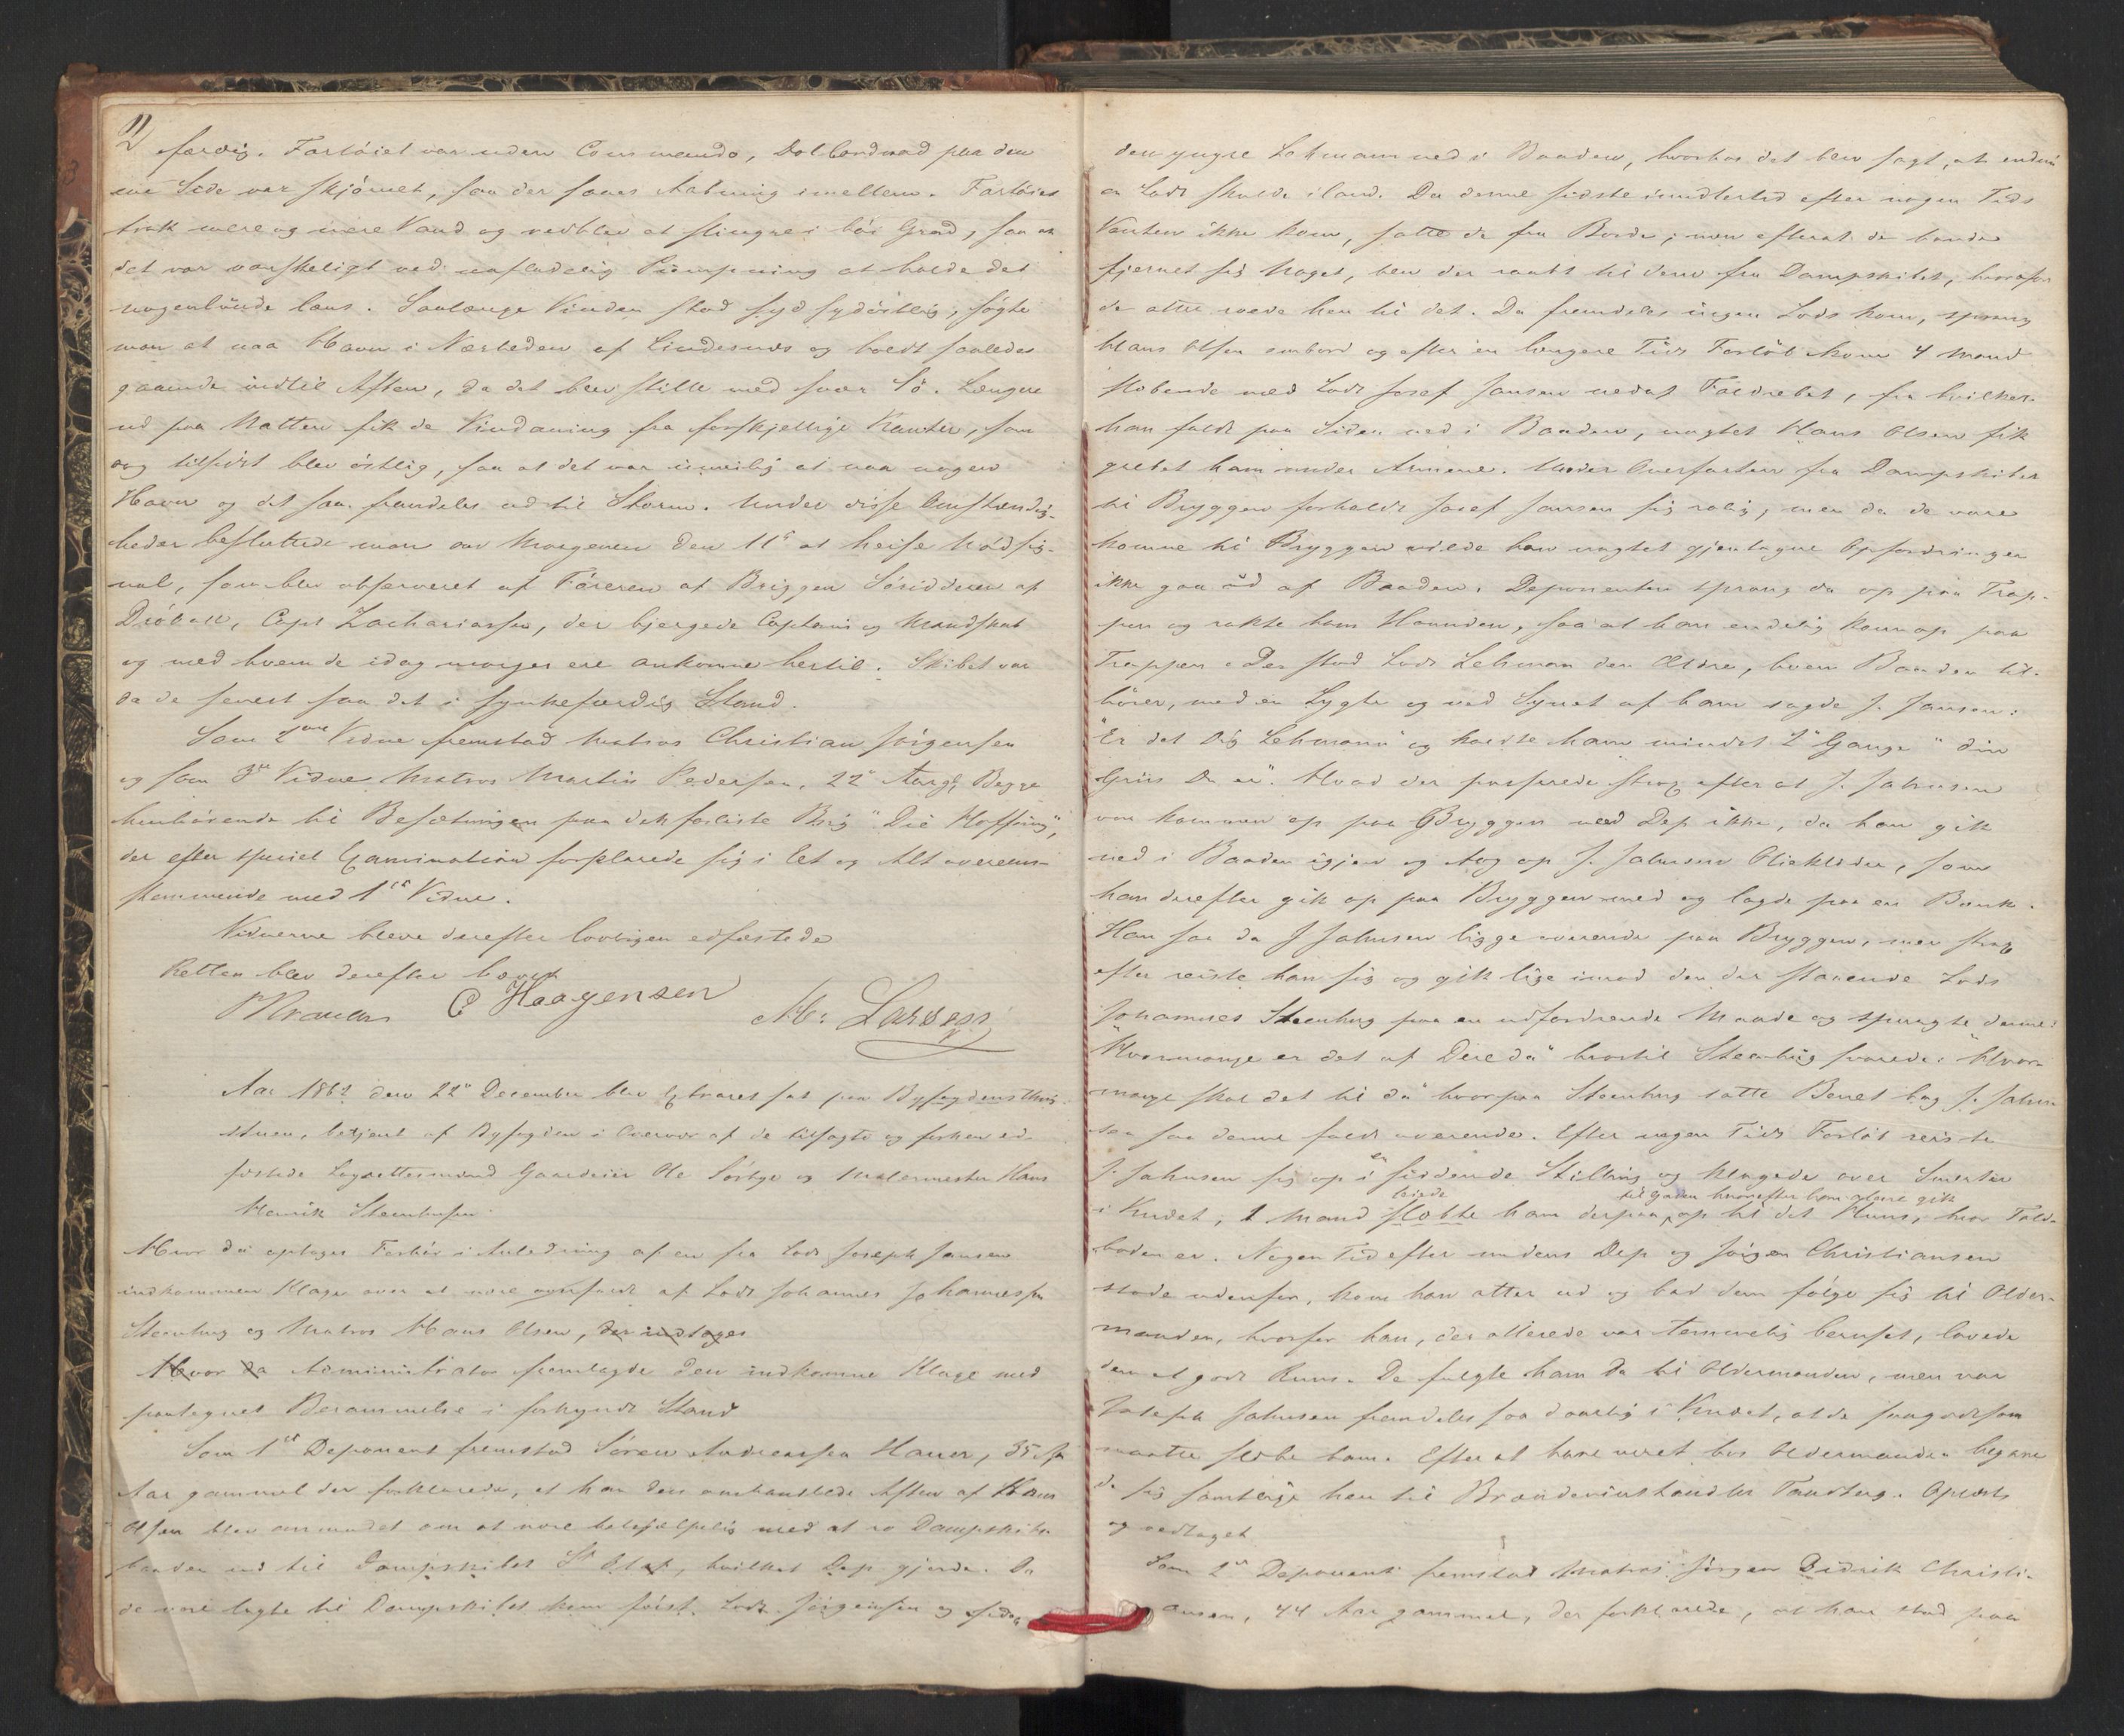 2
færdig. Fartøiet var uden Commando, Dolbordvad paa den
ene Side var skjørnet, saa der saaes Aabning imellem. Fartøiet
trak mere og mere Vand og vedblev at slingre i høi Grad, saa at
det var vanskeligt ved uafladelig Pumpning at holde det
nogenlunde læns. Saalænge Vinden stod syd sydøstlig, søgte
man at naa Havn i Nærheden af Lindesnæs og holdt saaledes
gaaende indtil Aften, da det blev stille med svær Sø. Længere
ud paa Natten fik de Vindaning fra forskjellige Kanter, som
og tilsidst blev østlig, saa at det var umulig at naa nogen
Havn og det saa fremdeles ud til Storm. Under disse Omstændig-
heder besluttede man om Morgenen den 11te at heise Nødsig-
nal, som blev observeret af Føreren af Briggen Søridderen af
Drøbak, Capt Zachariassen, der bjergede Captain og Mandskab
og med hvem de idag morges ere ankomne hertil. Skibet var
da de senest saa det i synkefærdig Stand.
Som 2det Vidne fremstod Matros Christian Jørgensen
og som 3de Vidne Matros Martin Pedersen, 22 Aar gl, Begge
henhørende til Besætningen paa det forliste Brig "Die Hoffnung",
der efter speciel Examination forklarede sig i Et og Alt overeens-
stemmende med 1ste Vidne.
Vidnerne bleve derefter lovligen edfæstede
Retten blev derefter hævet
C Haagensen M. Larssen
Aar 1862 den 22de December blev Extraret sat paa Byfogdens Thing-
stuen, betjent af Byfogden i Overvær af de tilsagte og forhen ed-
fæstede Lagrettesmænd Gaardeier Ole Sørbye og Malermester Hans
Henrik Steenhusen.
Hvor da optages Forhør i Anledning af en fra Lods Joseph Jansen
indkommen Klage over at være overfaldt af Lods Johannes Johannessen
Steenberg og Matros Hans Olsen, der indtages
Hvor da Administrator fremlagde den indkomne Klage med
paategnet Berammelse i forkyndt Stand
Som 1ste Deponent fremstod Søren Andreassen Hauer, 35
Aar gammel der forklarede, at han den omhandlede Aften af Hans
Olsen blev anmodet om at være behjælpelig med at ro Dampskibs-
baaden ud til Dampskibet St Olaf, hvilket Dep. gjorde. Da
de vare lagte til Dampskibet kom først Lods Jørgensen og siden
den yngre Lehmann ned i Baaden, hvorhos det blev sagt, at endnu
en Lods skulde iland. Da denne sidste imidlertid efter nogen Tids
Venten ikke kom, satte de fra Borde; men efterat de havde
fjernet sig Noget, blev der raabt til dem fra Dampskibet, hvorfor
de atter roede hen til det. Da fremdeles ingen Lods kom, sprang
Hans Olsen ombord og efter en længere Tids Forløb kom 4 Mand
slæbende med Lods Josef Jansen nedaf Faldrebet, fra hvilket
han faldt paa Siden ned i Baaden, uagtet Hans Olsen fik
grebet ham under Armene. Under Overfarten fra Dampskibet
til Bryggen forholdt Josef Jansen sig rolig, men da de vare
komne til Bryggen vilde han uagtet gjentagne Opfordringer
ikke gaa ud af Baaden. Deponenten sprang da op paa Trap-
pen og rakte ham Haanden, saa at han endelig kom op paa
Trappen. Der stod Lods Lehman den Ældre, hvem Baaden til-
hører, med en Lygte og ved Synet af ham sagde J. Jansen:
"Er det Dig Lehmann" og kaldte ham mindst 2 Gange "din
Griis Du er". Hvad der passerede strax efter at J. Jahnsen
var kommen op paa Bryggen veed Dep ikke, da han gik
ned i Baaden igjen og tog op J. Jahnsens Olieklæder, som
han derefter gik op paa Bryggen med og lagde paa en Bænk.
Han saa da J Jahnsen ligge overende paa Bryggen, men strax
efter reiste han sig og gik lige imod den der staaende Lods
Johannes Steenberg paa en udfordrende Maade og spurgte denne:
"Hvormange er det af Dere da" hvortil Steenberg svarede: "Hvor-
mange skal det til da" hvorpaa Steenberg satte Benet bag J. Jahn-
sen saa denne faldt overende. Efter nogen Tids Forløb reiste
J. Jahnsen sig op i en siddende Stilling og klagede over Smerter
leiede til Gaden hvorefter han alene gik
i Knæet, 1 Mand slæbte ham derpaa op til det Huus, hvor Told-
boden er. Nogen Tid efter medens Dep og Jørgen Christiansen
stode udenfor, kom han atter ud og bad dem følge sig til Older-
manden, hvorfor han, der allerede var temmelig beruset, lovede
dem et godt Ruus. De fulgte ham da til Oldermanden, men var
Joseph Jahnsen fremdeles saa daarlig i Knæet, at de saagodtsom
maatte slæbe ham. Efter at have været hos Oldermanden begave
de sig samtlige hen til Brændeviinshandler Tandberg. Oplæst
og vedtaget
Som 2den Deponent fremstod Matros Jørgen Didrik Christi-
ansen, 44 Aar gammel, der forklarede, at han stod paa